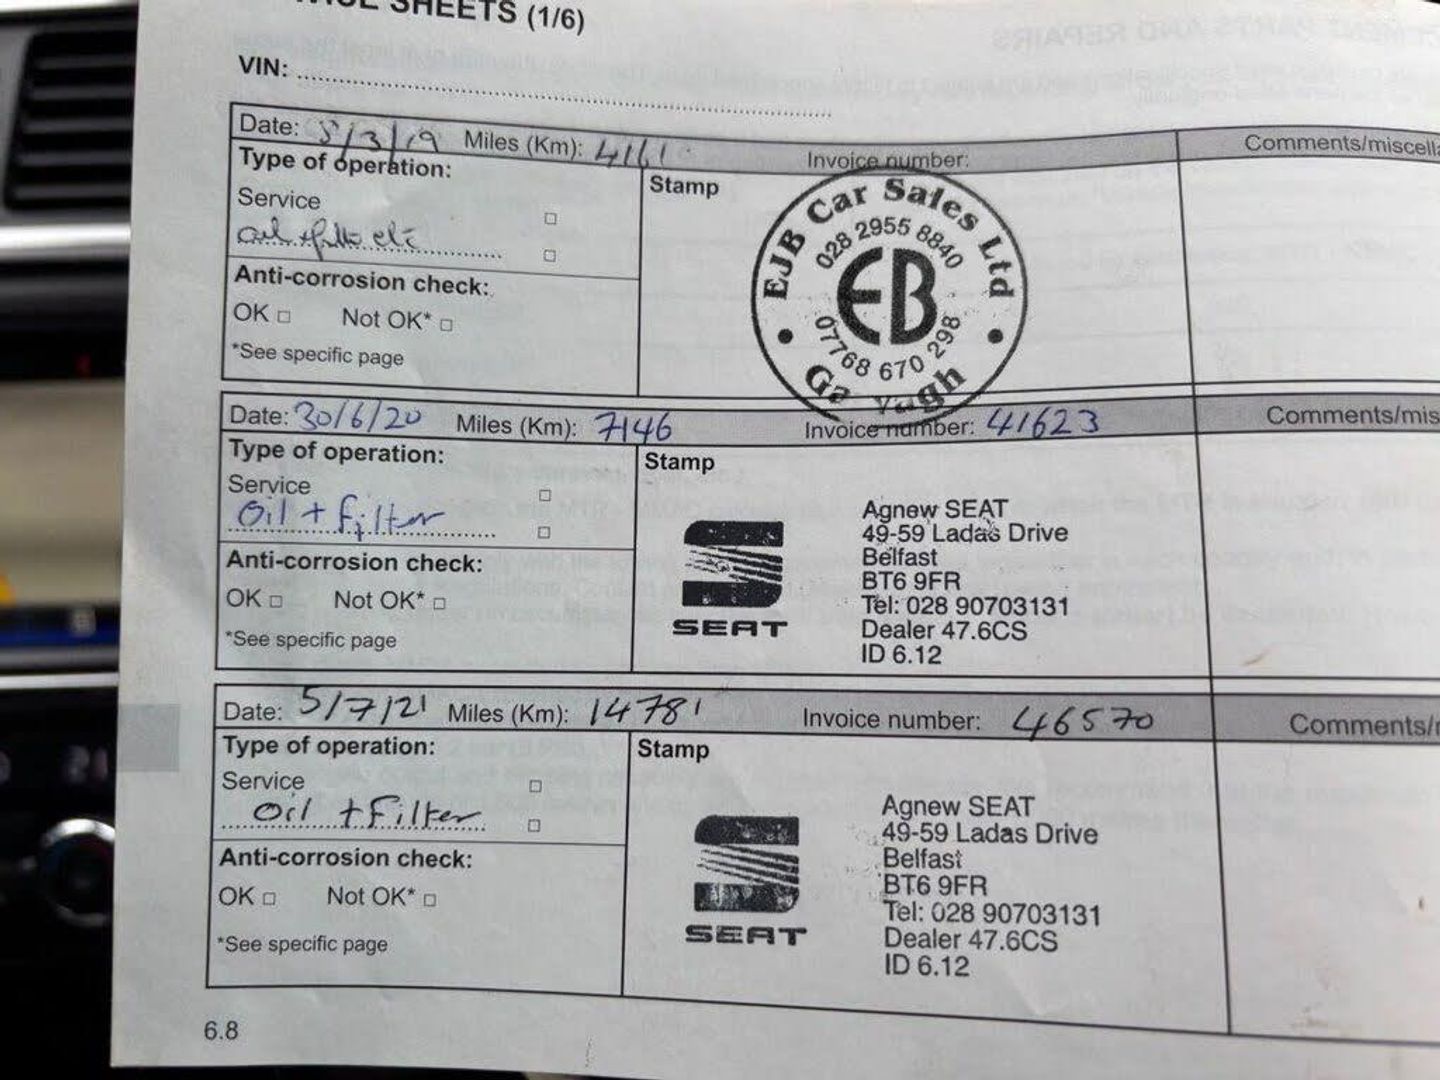 SHEETS (1/6)
VIN:
Date: 5/3/19 Miles (Km): 4161 Invoice number: Comments/miscella
Type of operation:
Stamp
Service
oil + filter etc
Anti-corrosion check:
OK □ Not OK* □
*See specific page
EJB Car Sales Ltd
028 2955 8840
EB
07768 670 298
Date: 30/6/20 Miles (Km): 7146 Invoice number: 41623 Comments/mis
Type of operation:
Stamp
Service
Oil + Filter
Anti-corrosion check:
OK □ Not OK* □
*See specific page
SEAT
Agnew SEAT
49-59 Ladas Drive
Belfast
BT6 9FR
Tel: 028 90703131
Dealer 47.6CS
ID 6.12
Date: 5/7/21 Miles (Km): 14781 Invoice number: 46570 Comments/
Type of operation:
Stamp
Service
Oil + Filter
Anti-corrosion check:
OK □ Not OK* □
*See specific page
SEAT
Agnew SEAT
49-59 Ladas Drive
Belfast
BT6 9FR
Tel: 028 90703131
Dealer 47.6CS
ID 6.12
6.8